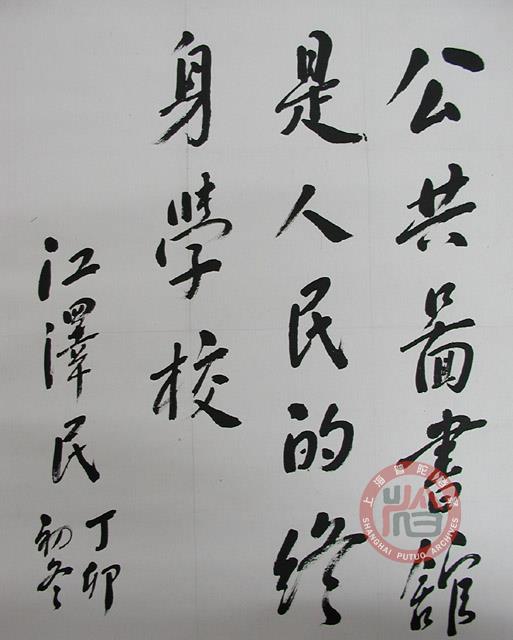 公共圖書館
是人民的終
身學校
江澤民
丁卯
初冬
上海普陀檔案
SHANGHAI PUTUO ARCHIVES